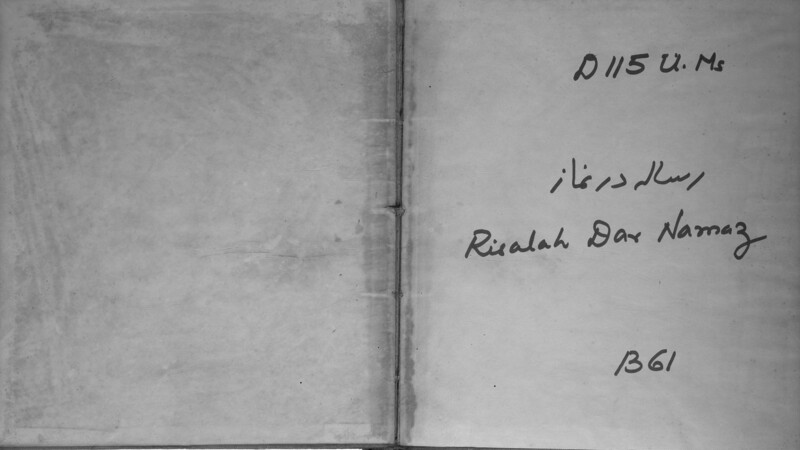 D 115 U. Ms
رساله در نماز
Risalah Dar Namaz
B 61